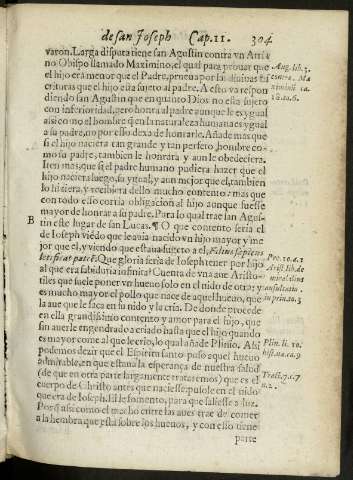 de san Joseph Cap. 11. 304
varon. Larga disputa tiene san Agustin contra vn Arri
no Obispo llamado Maximino, el qual para prouar que
el hijo era menor que el Padre, prueua por las diuinas es
crituras que el hijo esta sujeto al padre. A esto va respon
diendo san Agustin que en quanto Dios no esta sujeto
con inferioridad, pero honra al padre aunque le es ygual
assi como el hombre q̃ en la naturaleza humana es ygual
a su padre, no por esso dexa de honrarle. Añade mas que
si el hijo naciera tan grande y tan perfeto hombre co-
mo su padre, tambien le honrara y aun le obedeciera.
Iten mas, que si el padre humano pudiera hazer que el
hijo naciera luego su ygual, y aun mejor que el, tambien
lo hiziera, y recibiera dello mucho contento: mas que
con todo esso corria obligacion al hijo aunque fuesse
mayor de honrar a su padre. Por lo qual trae san Agus-
tin este lugar de san Lucas. ¶ O que contento seria el
de Ioseph viẽdo que le auia nacido vn hijo mayor y me
jor que el, y viendo que estaua sujeto a el, Filius sapiens
letificat patrẽ. Que gloria seria de Ioseph tener por hijo
al que era sabiduria infinita? Cuenta de vn aue Aristo-
tiles que suele poner vn hueuo solo en el nido de otra; y
es mucho mayor el pollo que nace de aquel hueuo, que
la aue que le saca en su nido y la cria. De donde procede
en ella grandissimo contento y amor para el hijo, que
sin auerle engendrado a criado hasta que el hijo quando
es mayor come al que le crio, lo qual añade Plinio. Assi
podemos dezir que el Espiritu santo puso aquel hueuo
admirable, en que estaua la esperança de nuestra salud
(de que en otra parte largamente trataremos) que es el
cuerpo de Christo antes que naciesse, pusole en el nido
que era de Ioseph. El le fomento, para que saliesse a luz.
Porq̃ assi como el macho entre las aues trae de comer
a la hembra que està sobre los hueuos, y con esso tiene
parte
Aug. lib. 3.
contra. Ma
ximinũ ca.
B
Pro. 10. a. 1
Arist. lib. de
mirabilibus
auscultatio.
in prin. 10. 3
Plin. li. 10.
hist. na. ca. 9
Tract. 7. c. 7